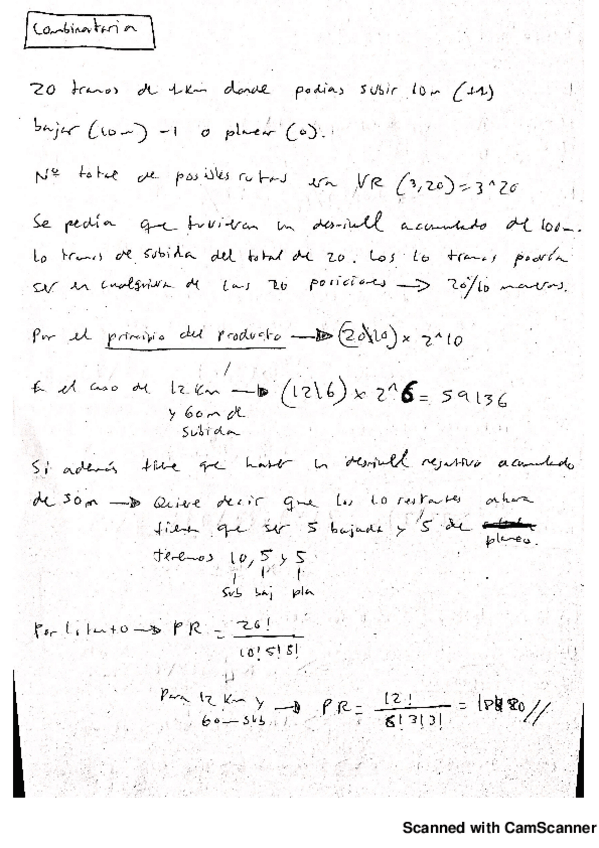 Combinatoria
20 tramos de 1 Km donde podías subir 10m (+1)
bajar (10m) -1 o planear (0).
Nº total de posibles rutas era VR (3,20) = 3^20
Se pedía que tuvieran un desnivell acumulado de 100m.
10 tramos de subida del total de 20. Los 10 tramos podría
ser en cualquiera de las 20 posiciones → 20\10 maneras.
Por el principio del producto → (20\10) x 2^10
En el caso de 12 Km → (12\6) x 2^6 = 59136
y 60m de
subida
Si además tiene que haber un desnivell negativo acumulado
de 50m → Quiere decir que los 10 restantes ahora
tienen que ser 5 bajada y 5 de planeo.
tenemos 10, 5 y 5
sub baj pla
Por lo tanto → PR = 20! / 10! 5! 5!
Para 12 Km y → PR = 12! / 6! 3! 3! = 18480 //
60m sub
Scanned with CamScanner